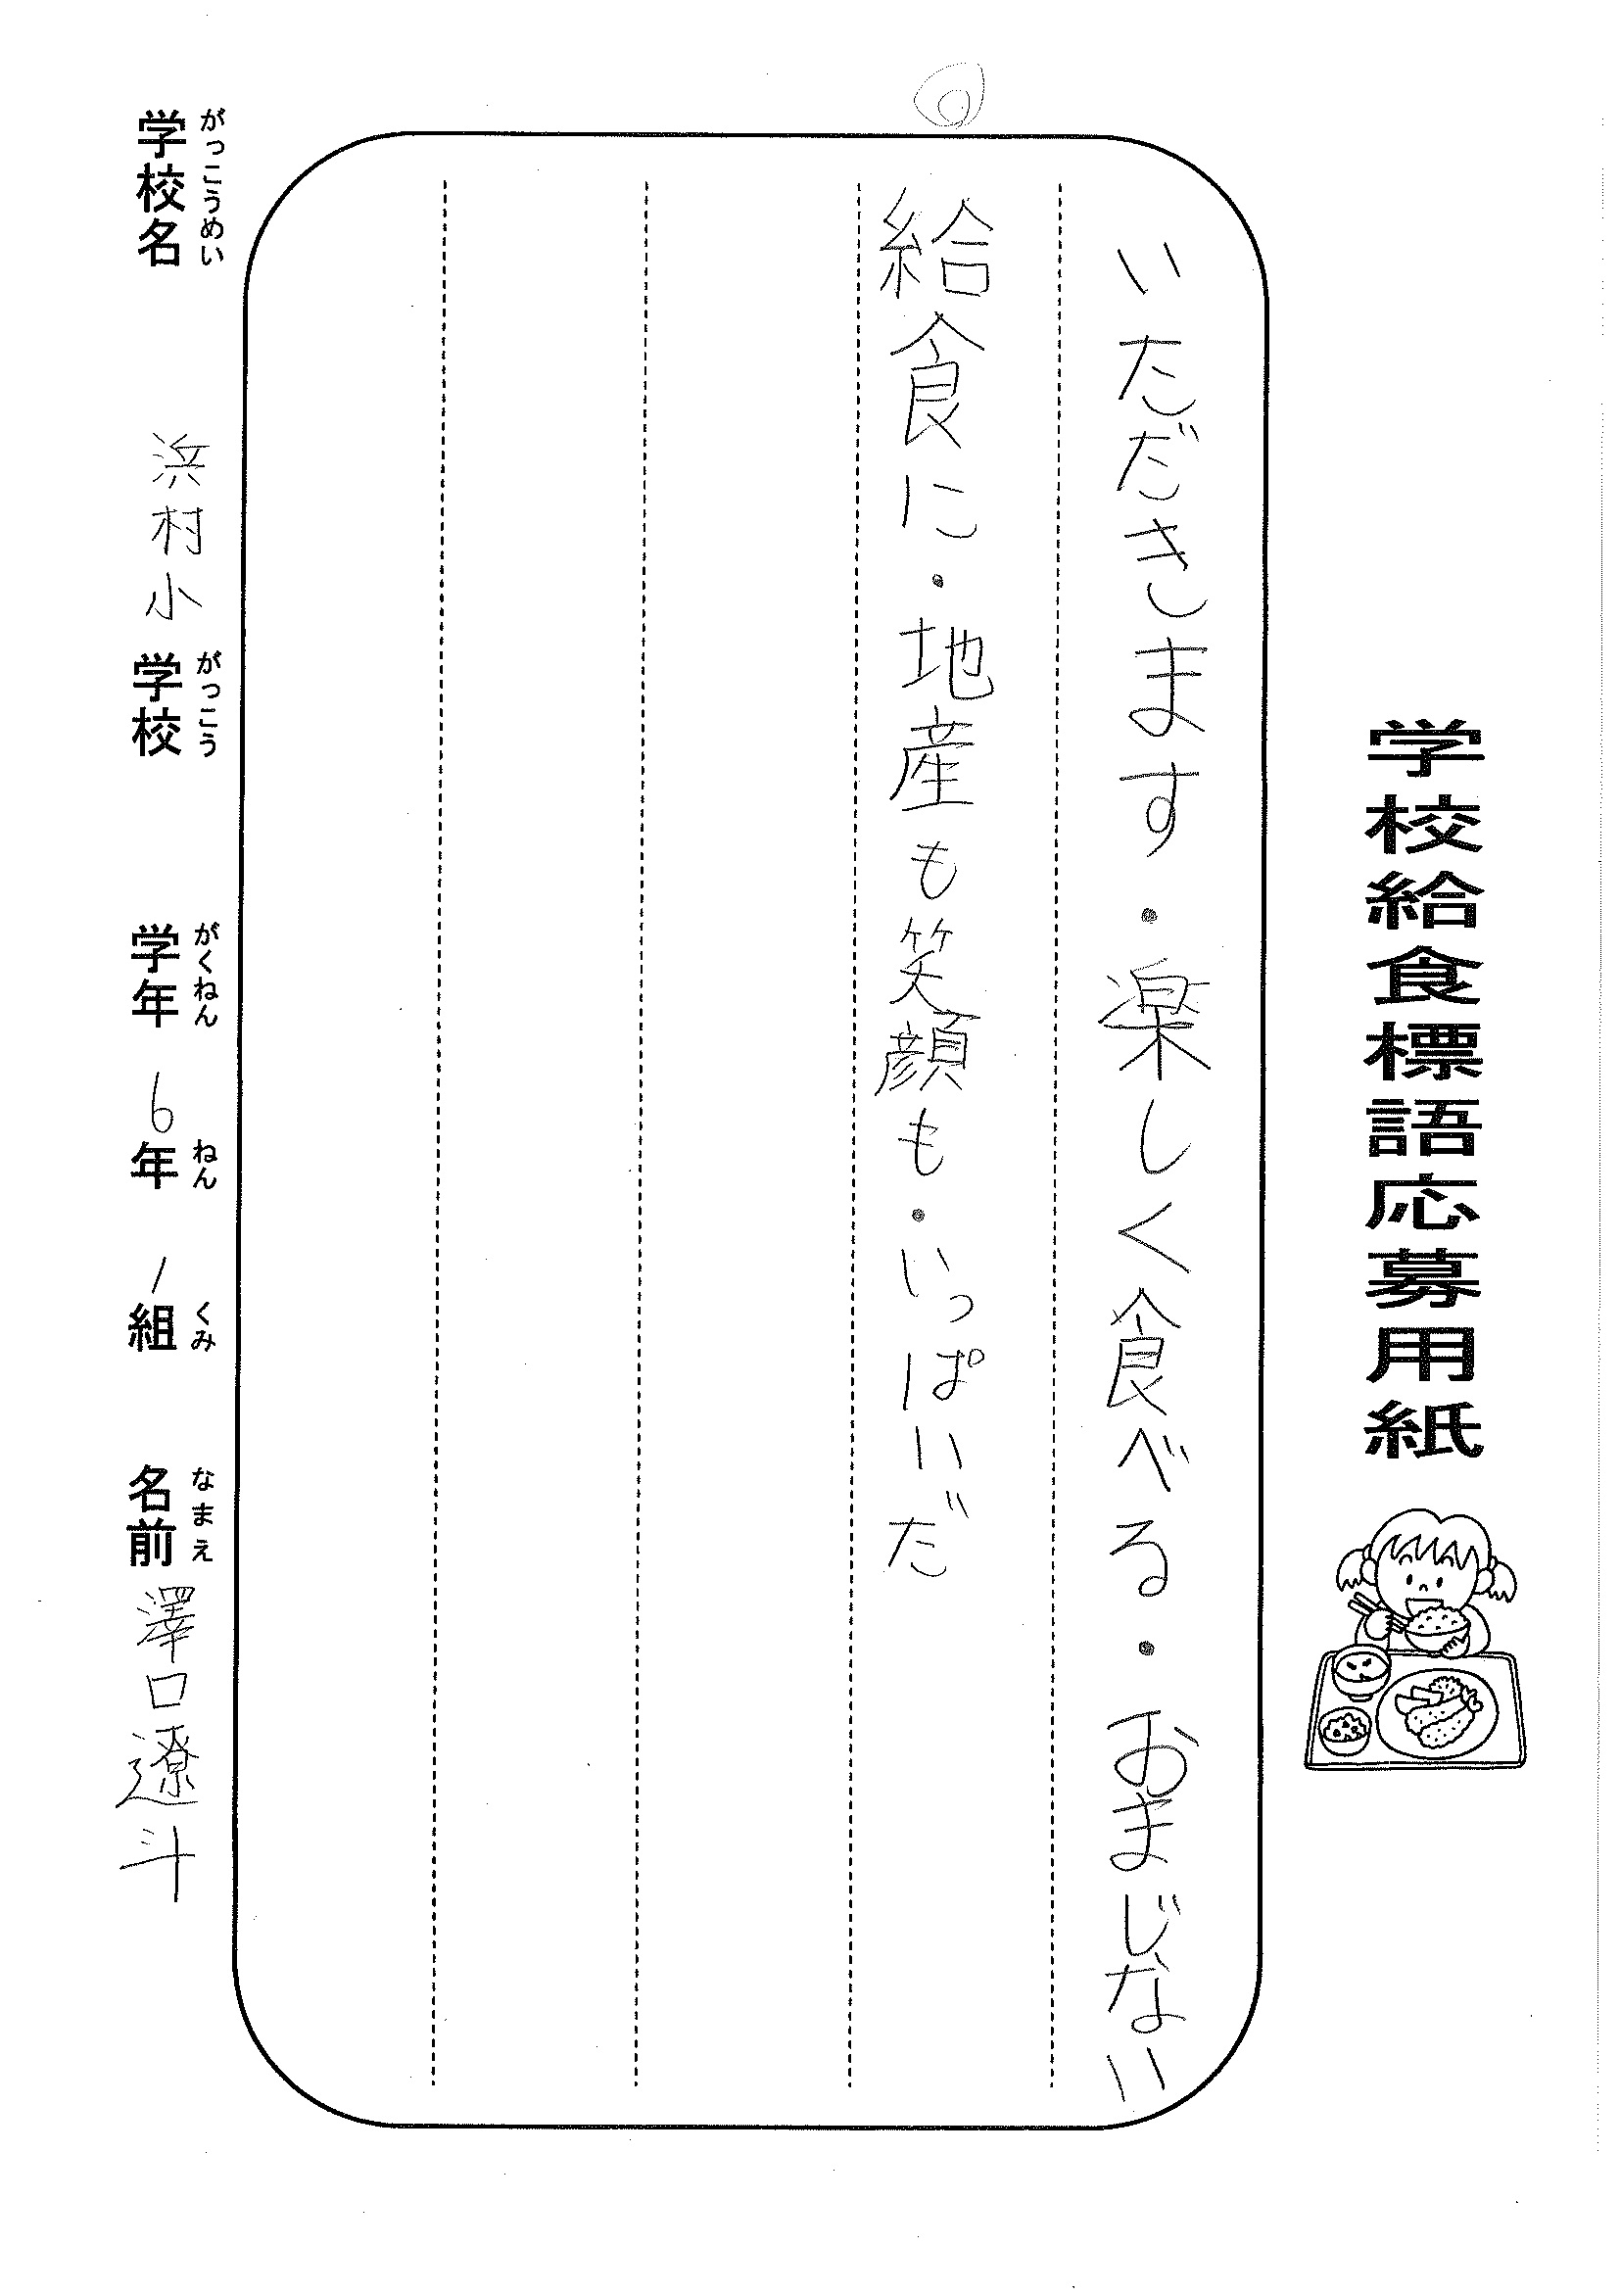 学校給食標語応募用紙
いただきます・楽しく食べる・おまじない
給食に・地産も笑顔も・いっぱいだ
学校名 浜村小 学校 学年 6 年 1 組 名前 澤口遼斗
がっこうめい がっこう がくねん ねん くみ なまえ